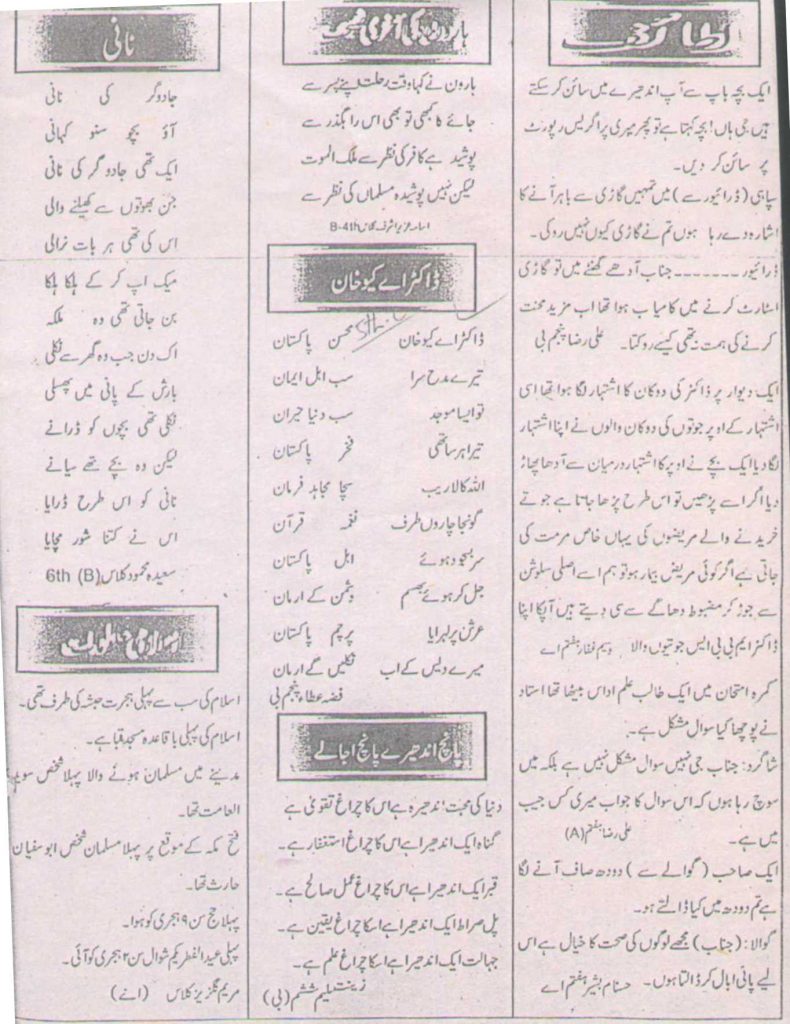 لطائف
ایک بچہ باپ سے آپ اندھیرے میں سائن کر سکتے
ہیں جی ہاں! بچہ کہتا ہے تو پھر میری پراگریس رپورٹ
پر سائن کر دیں۔
سپاہی (ڈرائیور سے) میں تمہیں گاڑی سے باہر آنے کا
اشارہ دے رہا ہوں تم نے گاڑی کیوں نہیں روکی۔
ڈرائیور ۔۔۔۔۔۔۔ جناب آدھے گھنٹے میں تو گاڑی
اسٹارٹ کرنے میں کامیاب ہوا تھا اب مزید محنت
کرنے کی ہمت نہ تھی کیسے روکتا۔ علی رضا پنجم بی
ایک دیوار پر ڈاکٹر کی دوکان کا اشتہار لگا ہوا تھا اسی
اشتہار کے اوپر جوتوں کی دوکان والوں نے اپنا اشتہار
لگا دیا ایک بچے نے اوپر کا اشتہار درمیان سے آدھا پھاڑ
دیا اگر اسے پڑھیں تو اس طرح پڑھا جاتا ہے جوتے
خریدنے والے مریضوں کی یہاں خاص مرمت کی
جاتی ہے اگر کوئی مریض بیمار ہو تو ہم اسے اصلی سلوشن
سے جوڑ کر مضبوط دھاگے سے سی دیتے ہیں آپکا اپنا
ڈاکٹر ایم بی بی ایس جوتیوں والا وسیم غفار ہفتم اے
کمرہ امتحان میں ایک طالب علم اداس بیٹھا تھا استاد
نے پوچھا کیا سوال مشکل ہے۔
شاگرد: جناب جی نہیں سوال مشکل نہیں ہے بلکہ میں
سوچ رہا ہوں کہ اس سوال کا جواب میری کس جیب
میں ہے۔ علی رضا ہفتم (A)
ایک صاحب (گوالے سے) دودھ صاف آنے لگا
ہے تم دودھ میں کیا ڈالتے ہو۔
گوالا: (جناب) مجھے لوگوں کی صحت کا خیال ہے اس
لیے پانی ابال کر ڈالتا ہوں۔ حسنام بشیر ہفتم اے
ہارون کی آخری
ہارون نے کہا وقت رحلت اپنے پسر سے
جائے گا کبھی تو بھی اس راہگذر سے
پوشید ہے کافر کی نظر سے ملک الموت
لیکن نہیں پوشیدہ مسلماں کی نظر سے
اسامہ عزیز اشرف کلاس 4th-B
ڈاکٹر اے کیو خان
5th.C
ڈاکٹر اے کیو خان محسن پاکستان
تیرے مدح سرا سب اہل ایمان
تو ایسا موجد سب دنیا حیران
تیرا ہر ساتھی فخر پاکستان
اللہ کا لاریب سچا مجاہد فرمان
گونجا چاروں طرف نغمہ قرآن
سر بسجود ہوئے اہل پاکستان
جل کر ہوئے بھسم دشمن کے ارمان
عرش پر لہرایا پرچم پاکستان
میرے دیس کے اب نکلیں گے ارمان
فضہ عطاء پنجم بی
پانچ اندھیرے پانچ اجالے
دنیا کی محبت اندھیرہ ہے اس کا چراغ تقویٰ ہے
گناہ ایک اندھیرا ہے اس کا چراغ استغفار ہے۔
قبر ایک اندھیرا ہے اس کا چراغ عمل صالح ہے۔
پل صراط ایک اندھیرا ہے اسکا چراغ یقین ہے۔
جہالت ایک اندھیرا ہے اسکا چراغ علم ہے۔
زینت سلیم ششم (بی)
نانی
جادوگر کی نانی
آؤ بچو سنو کہانی
ایک تھی جادو گر کی نانی
جن بھوتوں سے کھیلنے والی
اس کی تھی ہر بات نرالی
میک اپ کر کے ہلکا ہلکا
بن جاتی تھی وہ ملکہ
اک دن جب وہ گھر سے نکلی
بارش کے پانی میں پھسلی
نکلی تھی بچوں کو ڈرانے
لیکن وہ بچے تھے سیانے
نانی کو اس طرح ڈرایا
اس نے کتنا شور مچایا
سعیدہ محمود کلاس 6th (B)
اسلامی معلومات
اسلام کی سب سے پہلی ہجرت حبشہ کی طرف تھی۔
اسلام کی پہلی باقاعدہ مسجد قبا ہے۔
مدینے میں مسلمان ہونے والا پہلا شخص سوید
العامت تھا۔
فتح مکہ کے موقع پر پہلا مسلمان شخص ابو سفیان
حارث تھا۔
پہلا حج سن ۹ ہجری کو ہوا۔
پہلی عید الفطر یکم شوال سن ۲ ہجری کو آئی۔
مریم گلریز کلاس (اے)